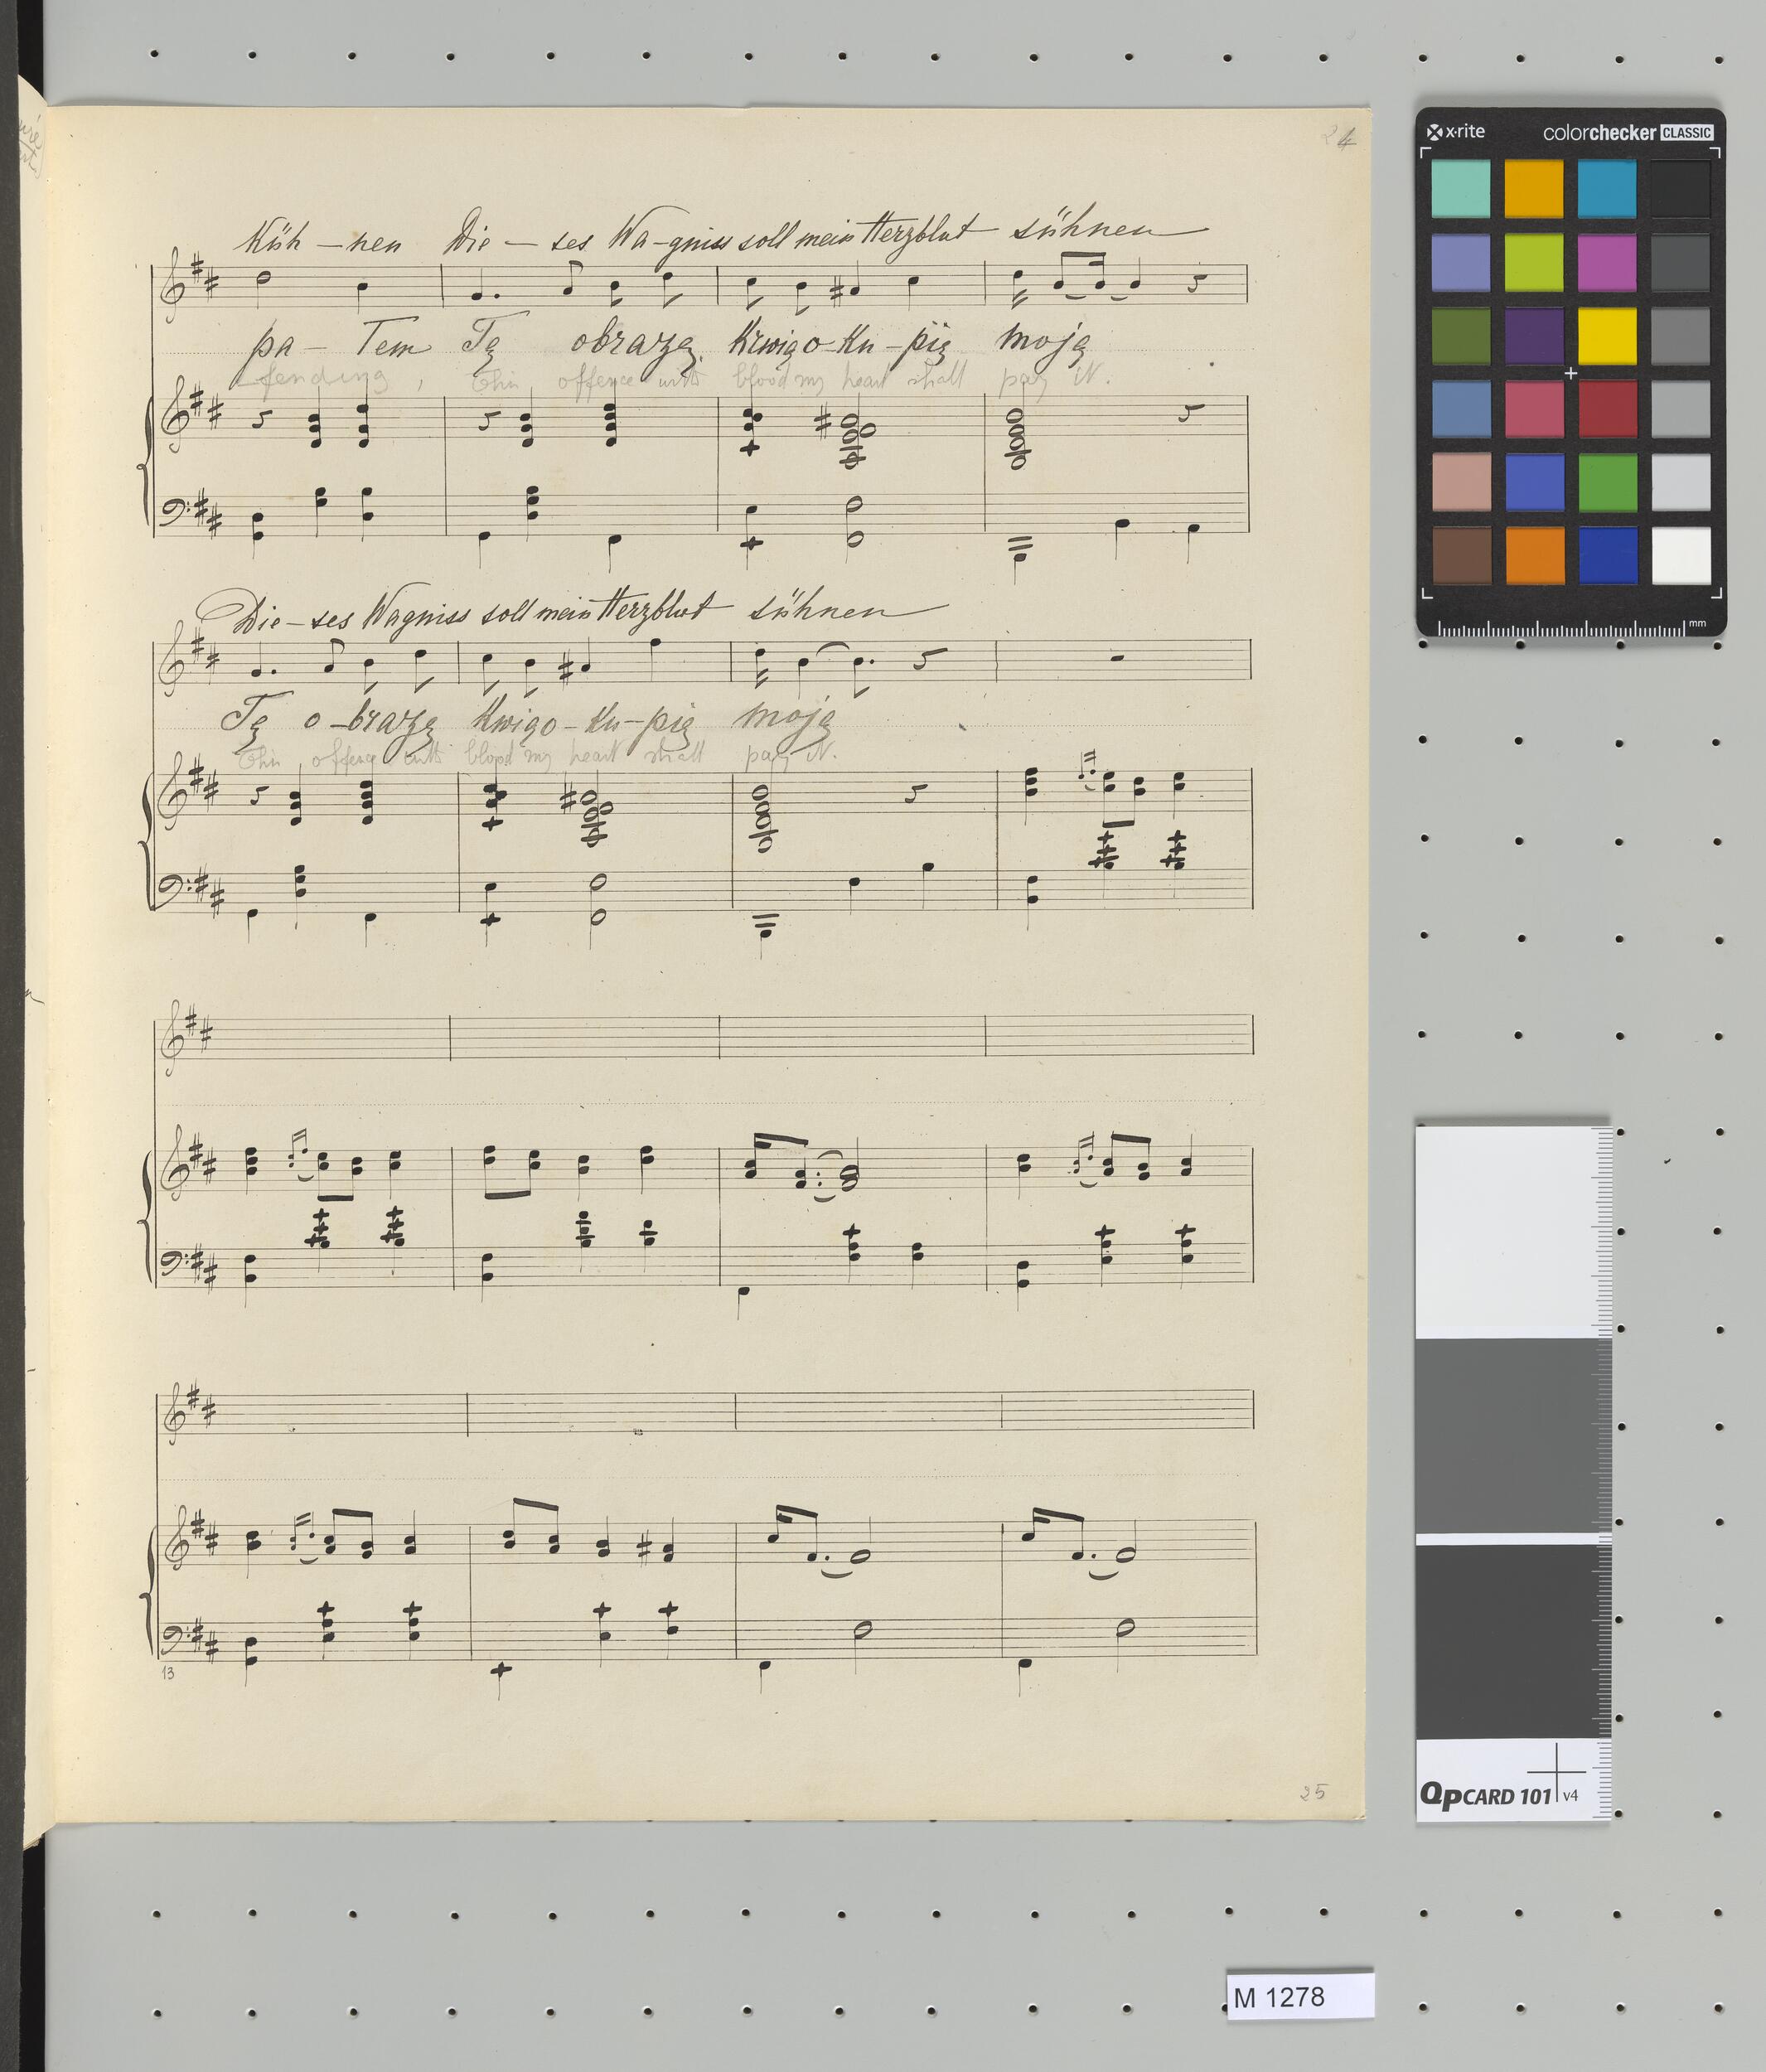 24
Küh – nen Die – ses Wa – gniss soll mein Herzblut sühnen
pa – Tem Tę obrazę Krwią o – Ku – pię moją
fending, this offence with blood my heart shall pay it.
Die – ses Wagniss soll mein Herzblut sühnen
Tę o – brazę Kwią o – Ku – pię moją
this offence with blood my heart shall pay it.
13
25
x-rite colorchecker CLASSIC
mm
QPCARD 101 v4
M 1278